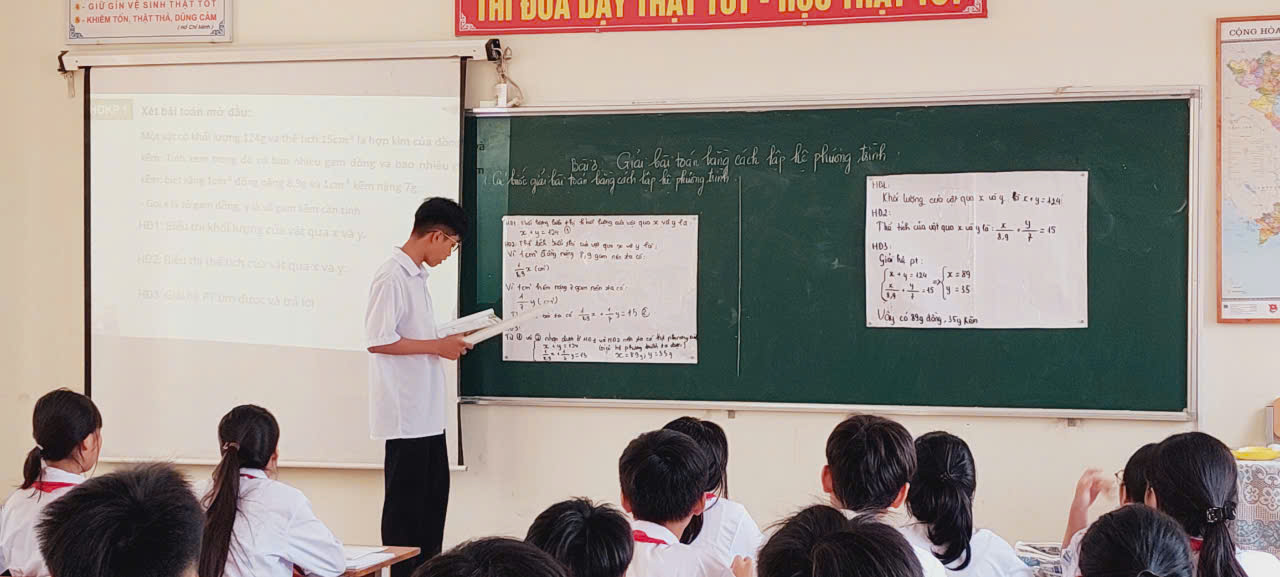 - GIỮ GÌN VỆ SINH THẬT TỐT
- KHIÊM TỐN, THẬT THÀ, DŨNG CẢM
( Hồ Chí Minh )
THI ĐUA DẠY THẬT TỐT - HỌC THẬT TỐT
CỘNG HÒA
HĐKP 1 Xét bài toán mở đầu:
Một vật có khối lượng 124g và thể tích 15cm³ là hợp kim của đồng
kẽm. Tính xem trong đó có bao nhiêu gam đồng và bao nhiêu g
kẽm, biết rằng 1cm³ đồng nặng 8,9g và 1cm³ kẽm nặng 7g.
- Gọi x là số gam đồng, y là số gam kẽm cần tính
HĐ1: Biểu thị khối lượng của vật qua x và y.
HĐ2: Biểu thị thể tích của vật qua x và y.
HĐ3: Giải hệ PT
và trả lời
Bài 3. Giải bài toán bằng cách lập hệ phương trình.
1. Các bước giải bài toán bằng cách lập hệ phương trình.
HĐ1: Khối lượng biểu thị khối lượng của vật qua x và y là:
x + y = 124 ①
HĐ2: Thể tích biểu thị của vật qua x và y là:
Vì 1cm³ đồng nặng 8,9 gam nên ta có:
1/8,9 x (cm³)
Vì 1cm³ kẽm nặng 7 gam nên ta có:
1/7 y (cm³)
ta có 1/8,9 x + 1/7 y = 15 ②
Từ ① và ② nhận được ở HĐ1 và HĐ2 nên ta có hệ phương trình
x + y = 124
1/8,9 x + 1/7 y = 15
x = 89g, y = 35g
HĐ1:
Khối lượng của vật qua x và y là x + y = 124
HĐ2:
Thể tích của vật qua x và y là: x/8,9 + y/7 = 15
HĐ3:
Giải hệ pt:
{ x + y = 124
x/8,9 + y/7 = 15 => { x = 89
y = 35
Vậy có 89g đồng, 35g kẽm